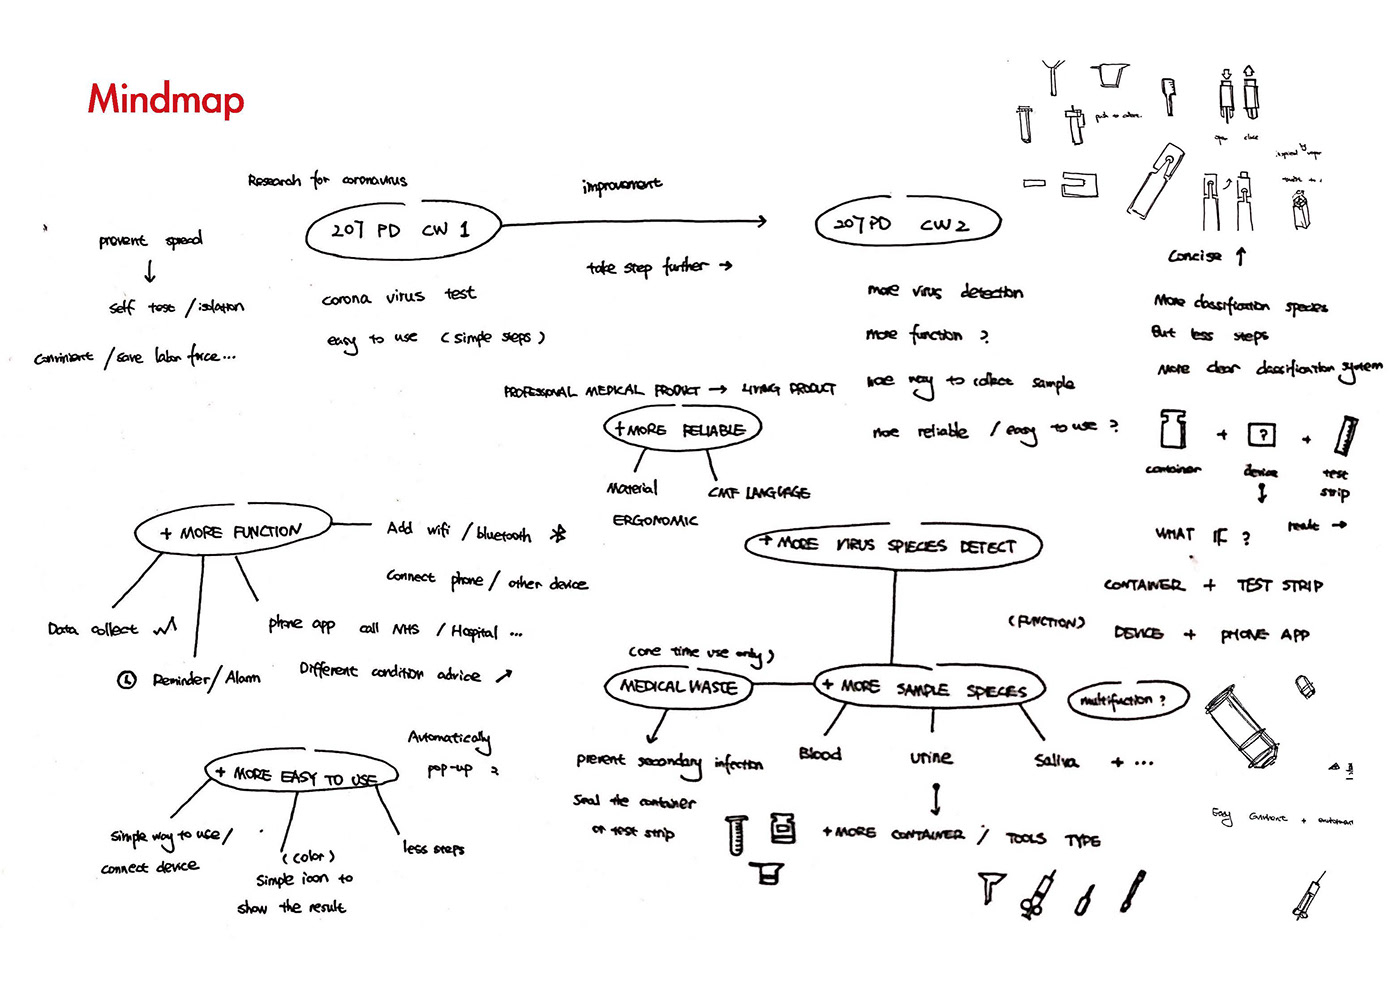 Mindmap
Research for coronavirus
207 PD CW 1
improvement
take step further →
207 PD CW2
prevent spread
self test / isolation
convinient / save labor force...
corona virus test
easy to use (simple steps)
more virus detection
more function ?
more way to collect sample
more reliable / easy to use ?
push to
open close
Concise ↑
More classification species
But less steps
More clear classification system
container + device + test strip
?
result →
WHAT IF ?
CONTAINER + TEST STRIP
(FUNCTION) DEVICE + PHONE APP
PROFESSIONAL MEDICAL PRODUCT → LIVING PRODUCT
+ MORE RELIABLE
Material
CMF LANGUAGE
ERGONOMIC
+ MORE FUNCTION
Add wifi / bluetooth
Connect phone / other device
Data collect
phone app call NHS / Hospital ...
Reminder / Alarm
Different condition advice
+ MORE VIRUS SPIECES DETECT
(one time use only)
MEDICAL WASTE
+ MORE SAMPLE SPIECES
multifunction ?
prevent secondary infection
Seal the container
or test strip
Blood
urine
Saliva + ...
+ MORE CONTAINER / TOOLS TYPE
Easy
+ MORE EASY TO USE
Automatically
pop-up ?
Simple way to use /
connect device
(color)
Simple icon to
show the result
less steps